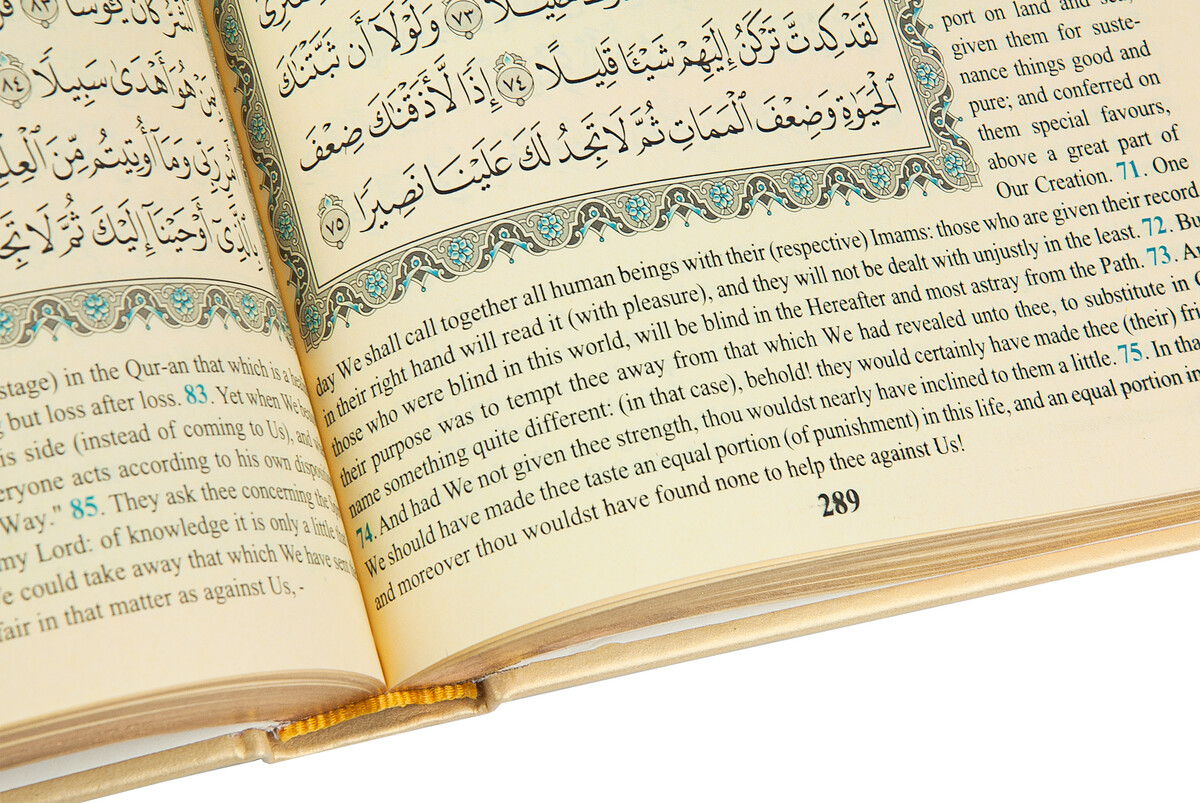 ٧٣ وَلَوْلَآ أَن ثَبَّتْنَٰكَ
لَقَدْ كِدتَّ تَرْكَنُ إِلَيْهِمْ شَيْـًٔا قَلِيلًا ٧٤ إِذًا لَّأَذَقْنَٰكَ ضِعْفَ
ٱلْحَيَوٰةِ وَضِعْفَ ٱلْمَمَاتِ ثُمَّ لَا تَجِدُ لَكَ عَلَيْنَا نَصِيرًا ٧٥
port on land and sea;
given them for suste-
nance things good and
pure; and conferred on
them special favours,
above a great part of
Our Creation. 71. One
day We shall call together all human beings with their (respective) Imams: those who are given their record
in their right hand will read it (with pleasure), and they will not be dealt with unjustly in the least. 72. Bu
those who were blind in this world, will be blind in the Hereafter and most astray from the Path. 73. A
their purpose was to tempt thee away from that which We had revealed unto thee, to substitute in
name something quite different: (in that case), behold! they would certainly have made thee (their) fri
74. And had We not given thee strength, thou wouldst nearly have inclined to them a little. 75. In tha
We should have made thee taste an equal portion (of punishment) in this life, and an equal portion in
and moreover thou wouldst have found none to help thee against Us!
289
ٱلشَّرُّ كَانَ يَـُٔوسًا ٨٣
مَنْ هُوَ أَهْدَىٰ سَبِيلًا ٨٤
رَبِّى وَمَآ أُوتِيتُم مِّنَ ٱلْعِلْمِ
بِٱلَّذِىٓ أَوْحَيْنَآ إِلَيْكَ ثُمَّ لَا
stage) in the Qur-an that which is a
but loss after loss. 83. Yet when We
is side (instead of coming to Us), and
eryone acts according to his own dispo
Way." 85. They ask thee concerning the
my Lord: of knowledge it is only a little
e could take away that which We have sent
fair in that matter as against Us,-